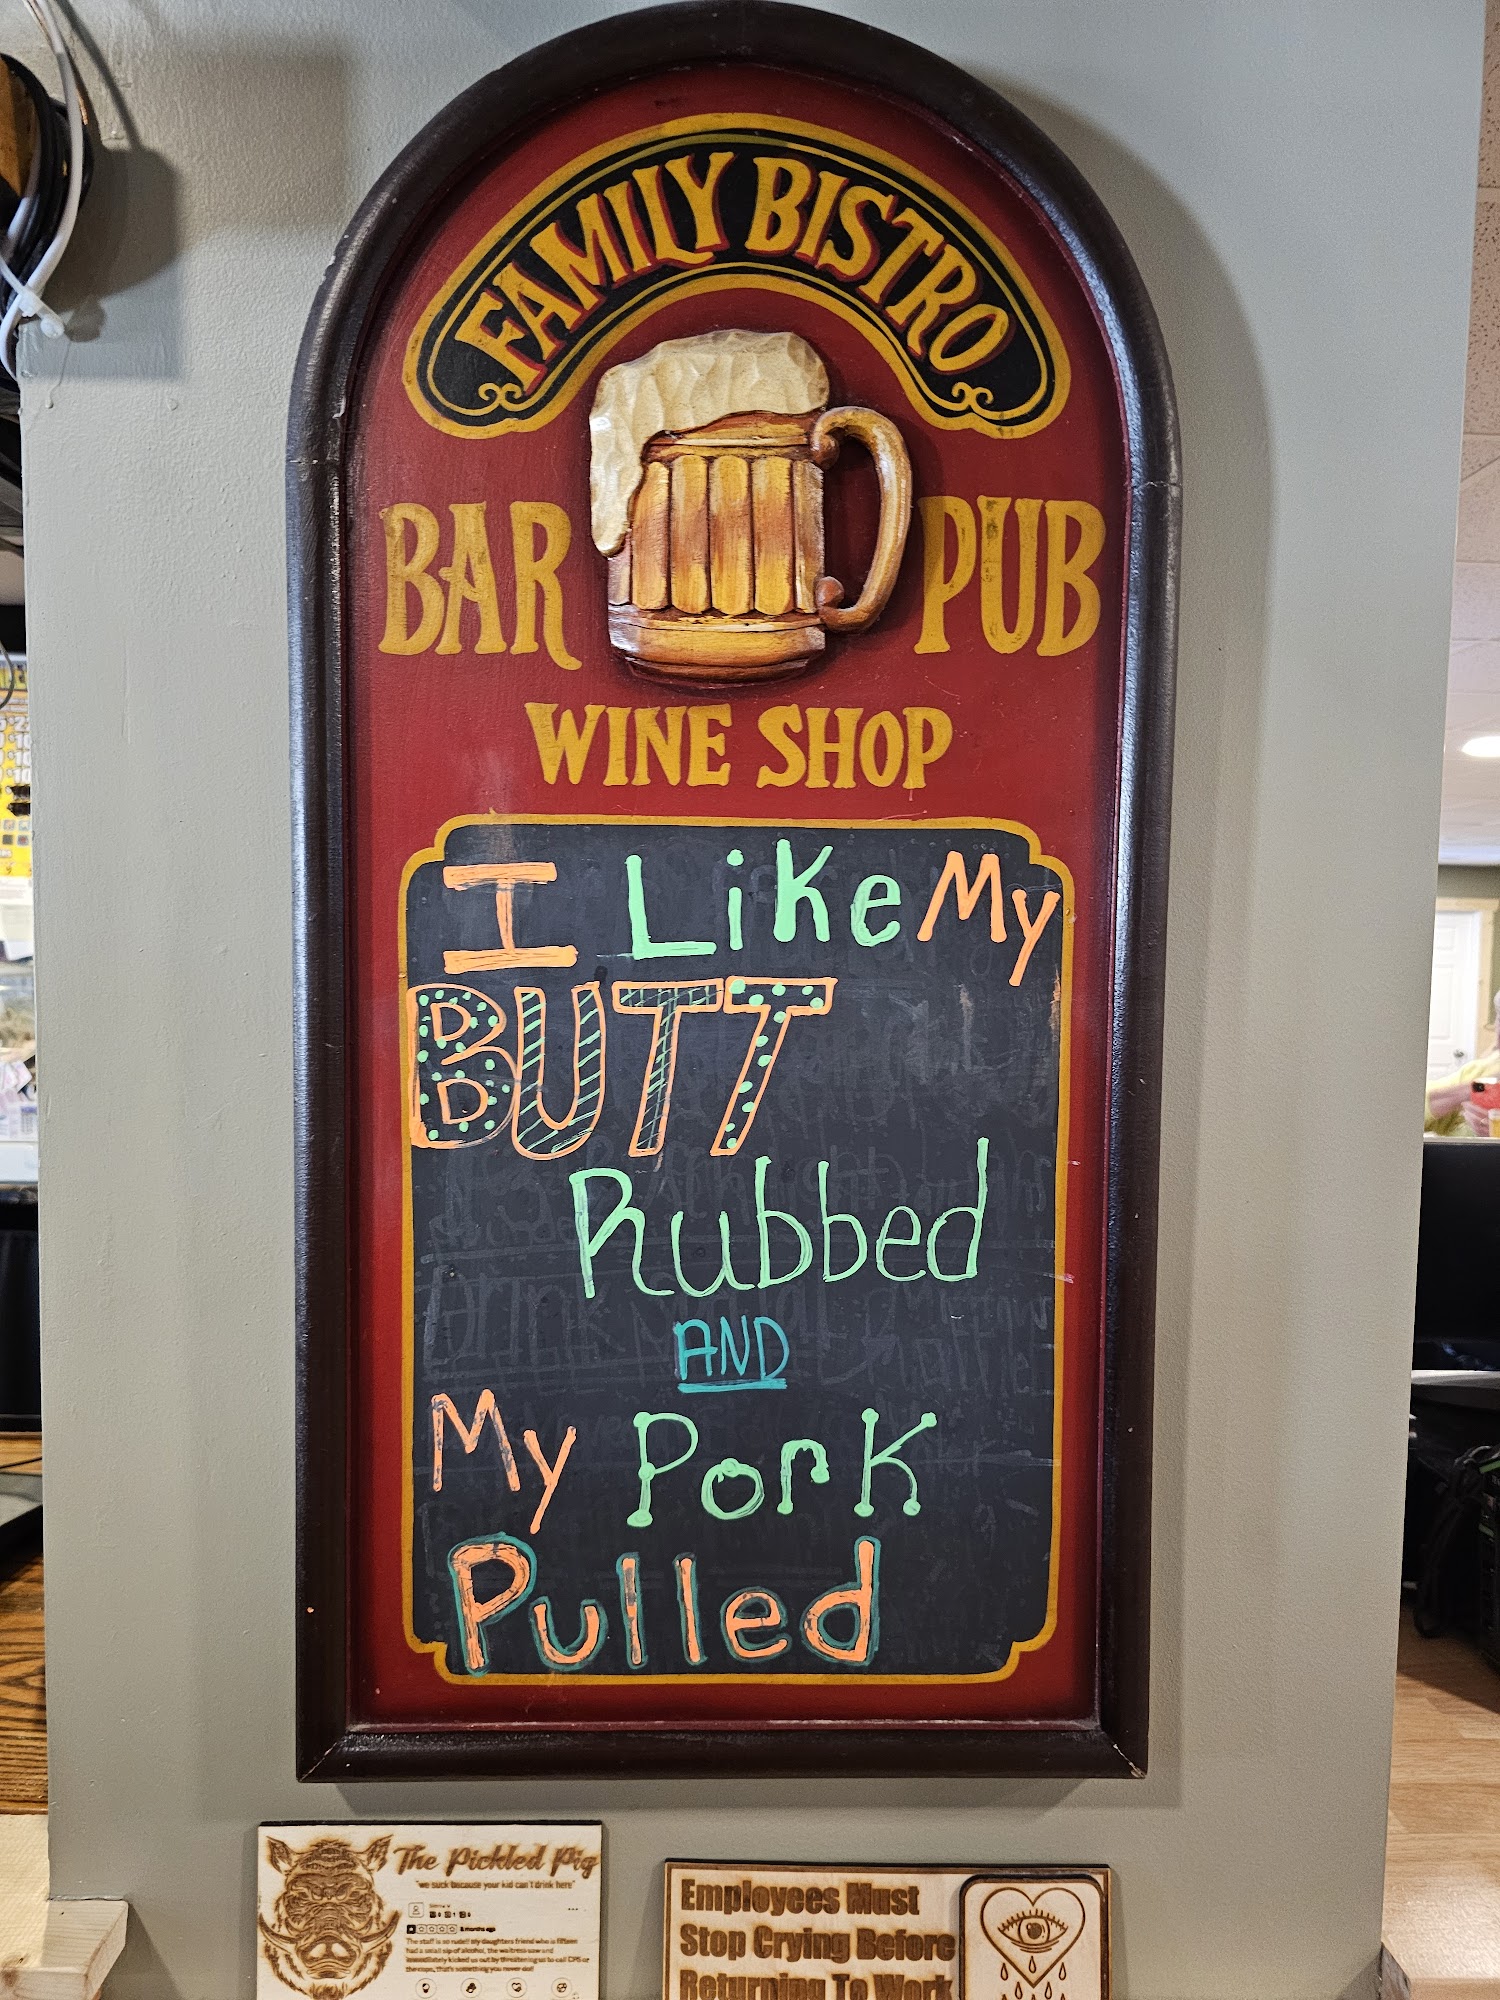 FAMILY BISTRO
BAR PUB
WINE SHOP
I Like My
BUTT
Rubbed
AND
My Pork
Pulled
The Pickled Pig
"we suck because your kid can't drink here"
8 months ago
The staff is so rude!! My daughters friend who is fifteen
had a small sip of alcohol, the waitress saw and
immediately kicked us out by threatening us to call CPS or
the cops, that's something you never do!!
Employees Must
Stop Crying Before
Returning To Work